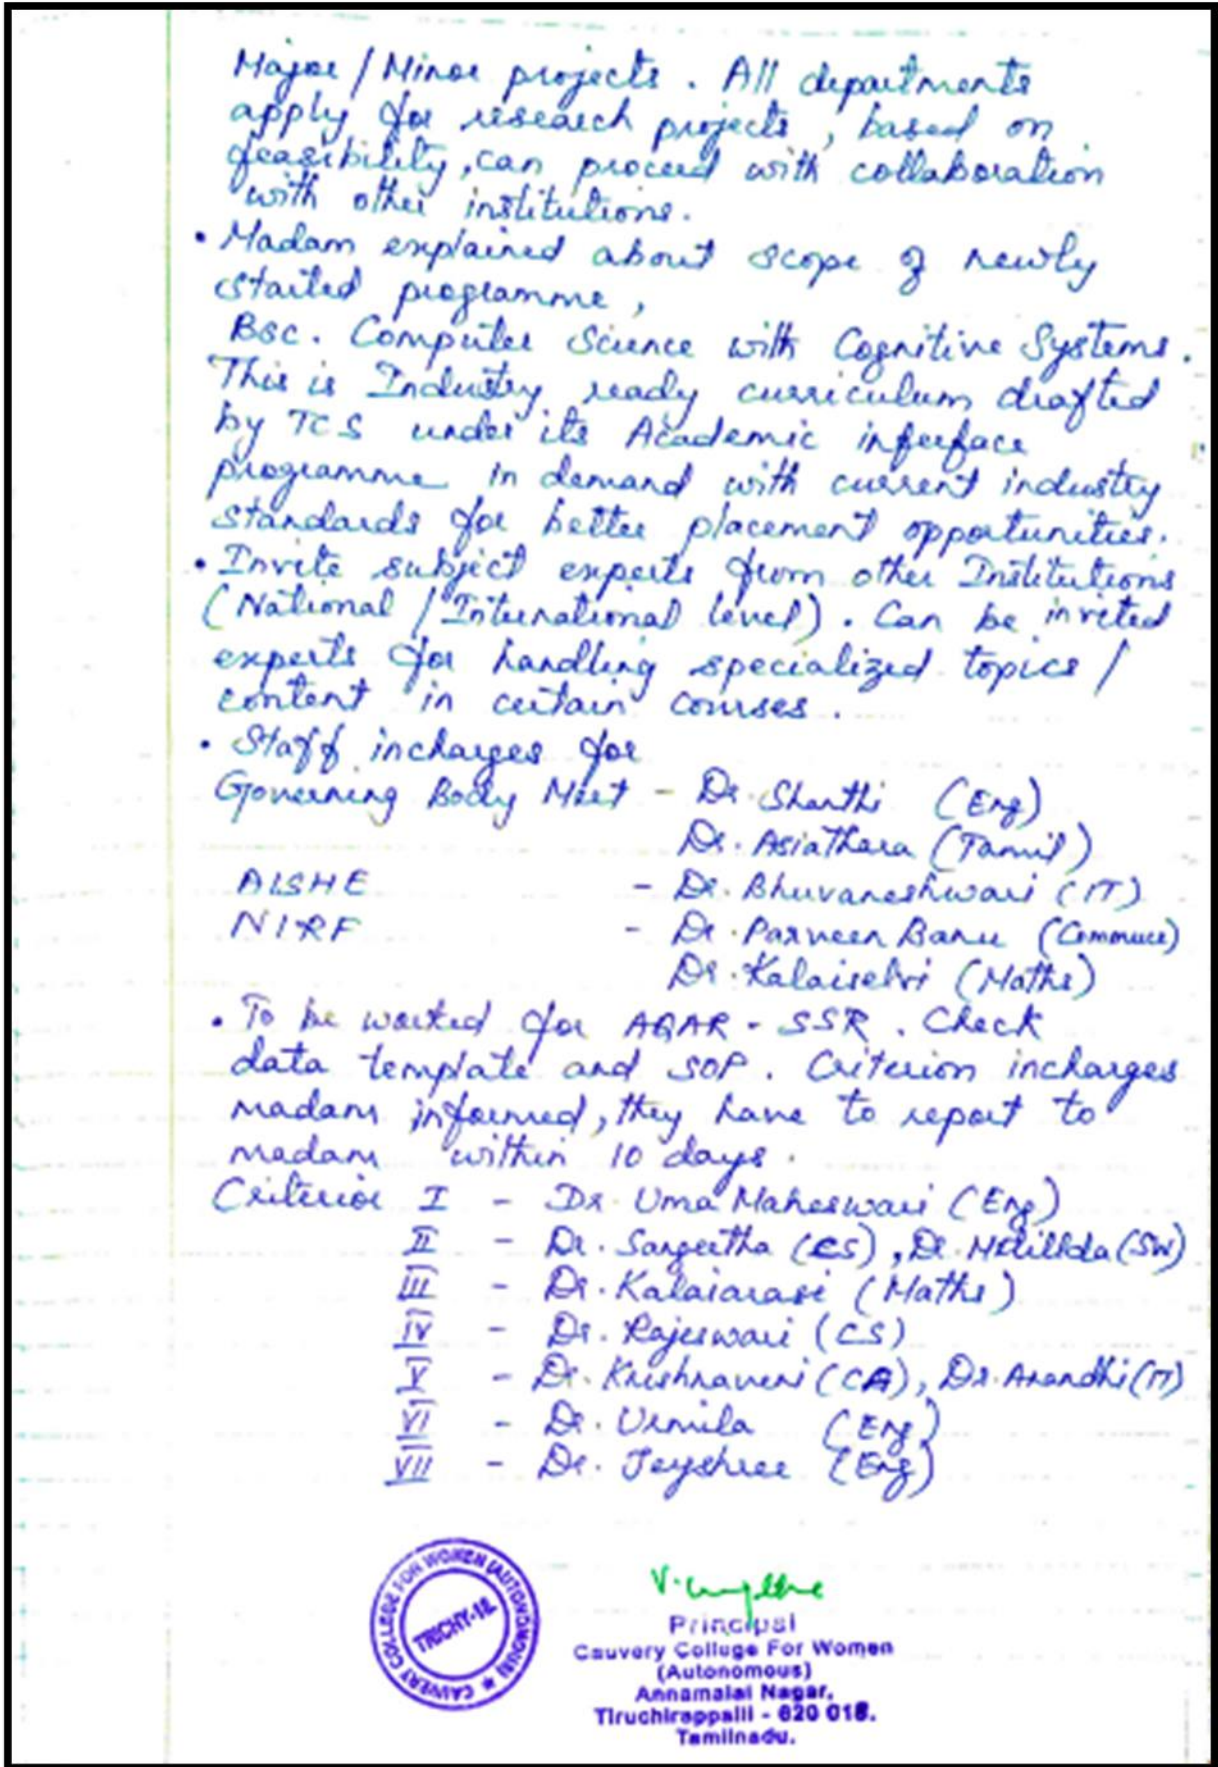 Major / Minor projects. All departments
apply for research projects, based on
feasibility, can proceed with collaboration
with other institutions.
• Madam explained about scope of newly
started programme,
Bsc. Computer Science with Cognitive Systems.
This is Industry ready curriculum drafted
by TCS under its Academic inferface
programme in demand with current industry
standards for better placement opportunities.
• Invite subject experts from other Institutions
(National / International level). Can be invited
experts for handling specialized topics /
content in certain courses.
• Staff incharges for
Governing Body Meet - Dr. Shanthi (Eng)
Dr. Asiathara (Tamil)
AISHE - Dr. Bhuvaneshwari (IT)
NIRF - Dr. Parveen Banu (Commerce)
Dr. Kalaiselvi (Maths)
• To be worked for AQAR - SSR. Check
data template and SOP. Criterion incharges
madam informed, they have to report to
madam within 10 days.
Criterior I - Dr. Uma Maheswari (Eng)
II - Dr. Sangeetha (CS), Dr. (SW)
III - Dr. Kalaiarasi (Maths)
IV - Dr. Rajeswari (CS)
V - Dr. Krishnaveni (CA), Dr. Anandhi (IT)
VI - Dr. Urmila (Eng)
VII - Dr. Jeyshree (Eng)
CAUVERY COLLEGE FOR WOMEN (AUTONOMOUS)
TRICHY-18
Principal
Cauvery College For Women
(Autonomous)
Annamalai Nagar,
Tiruchirappalli - 620 018.
Tamilnadu.